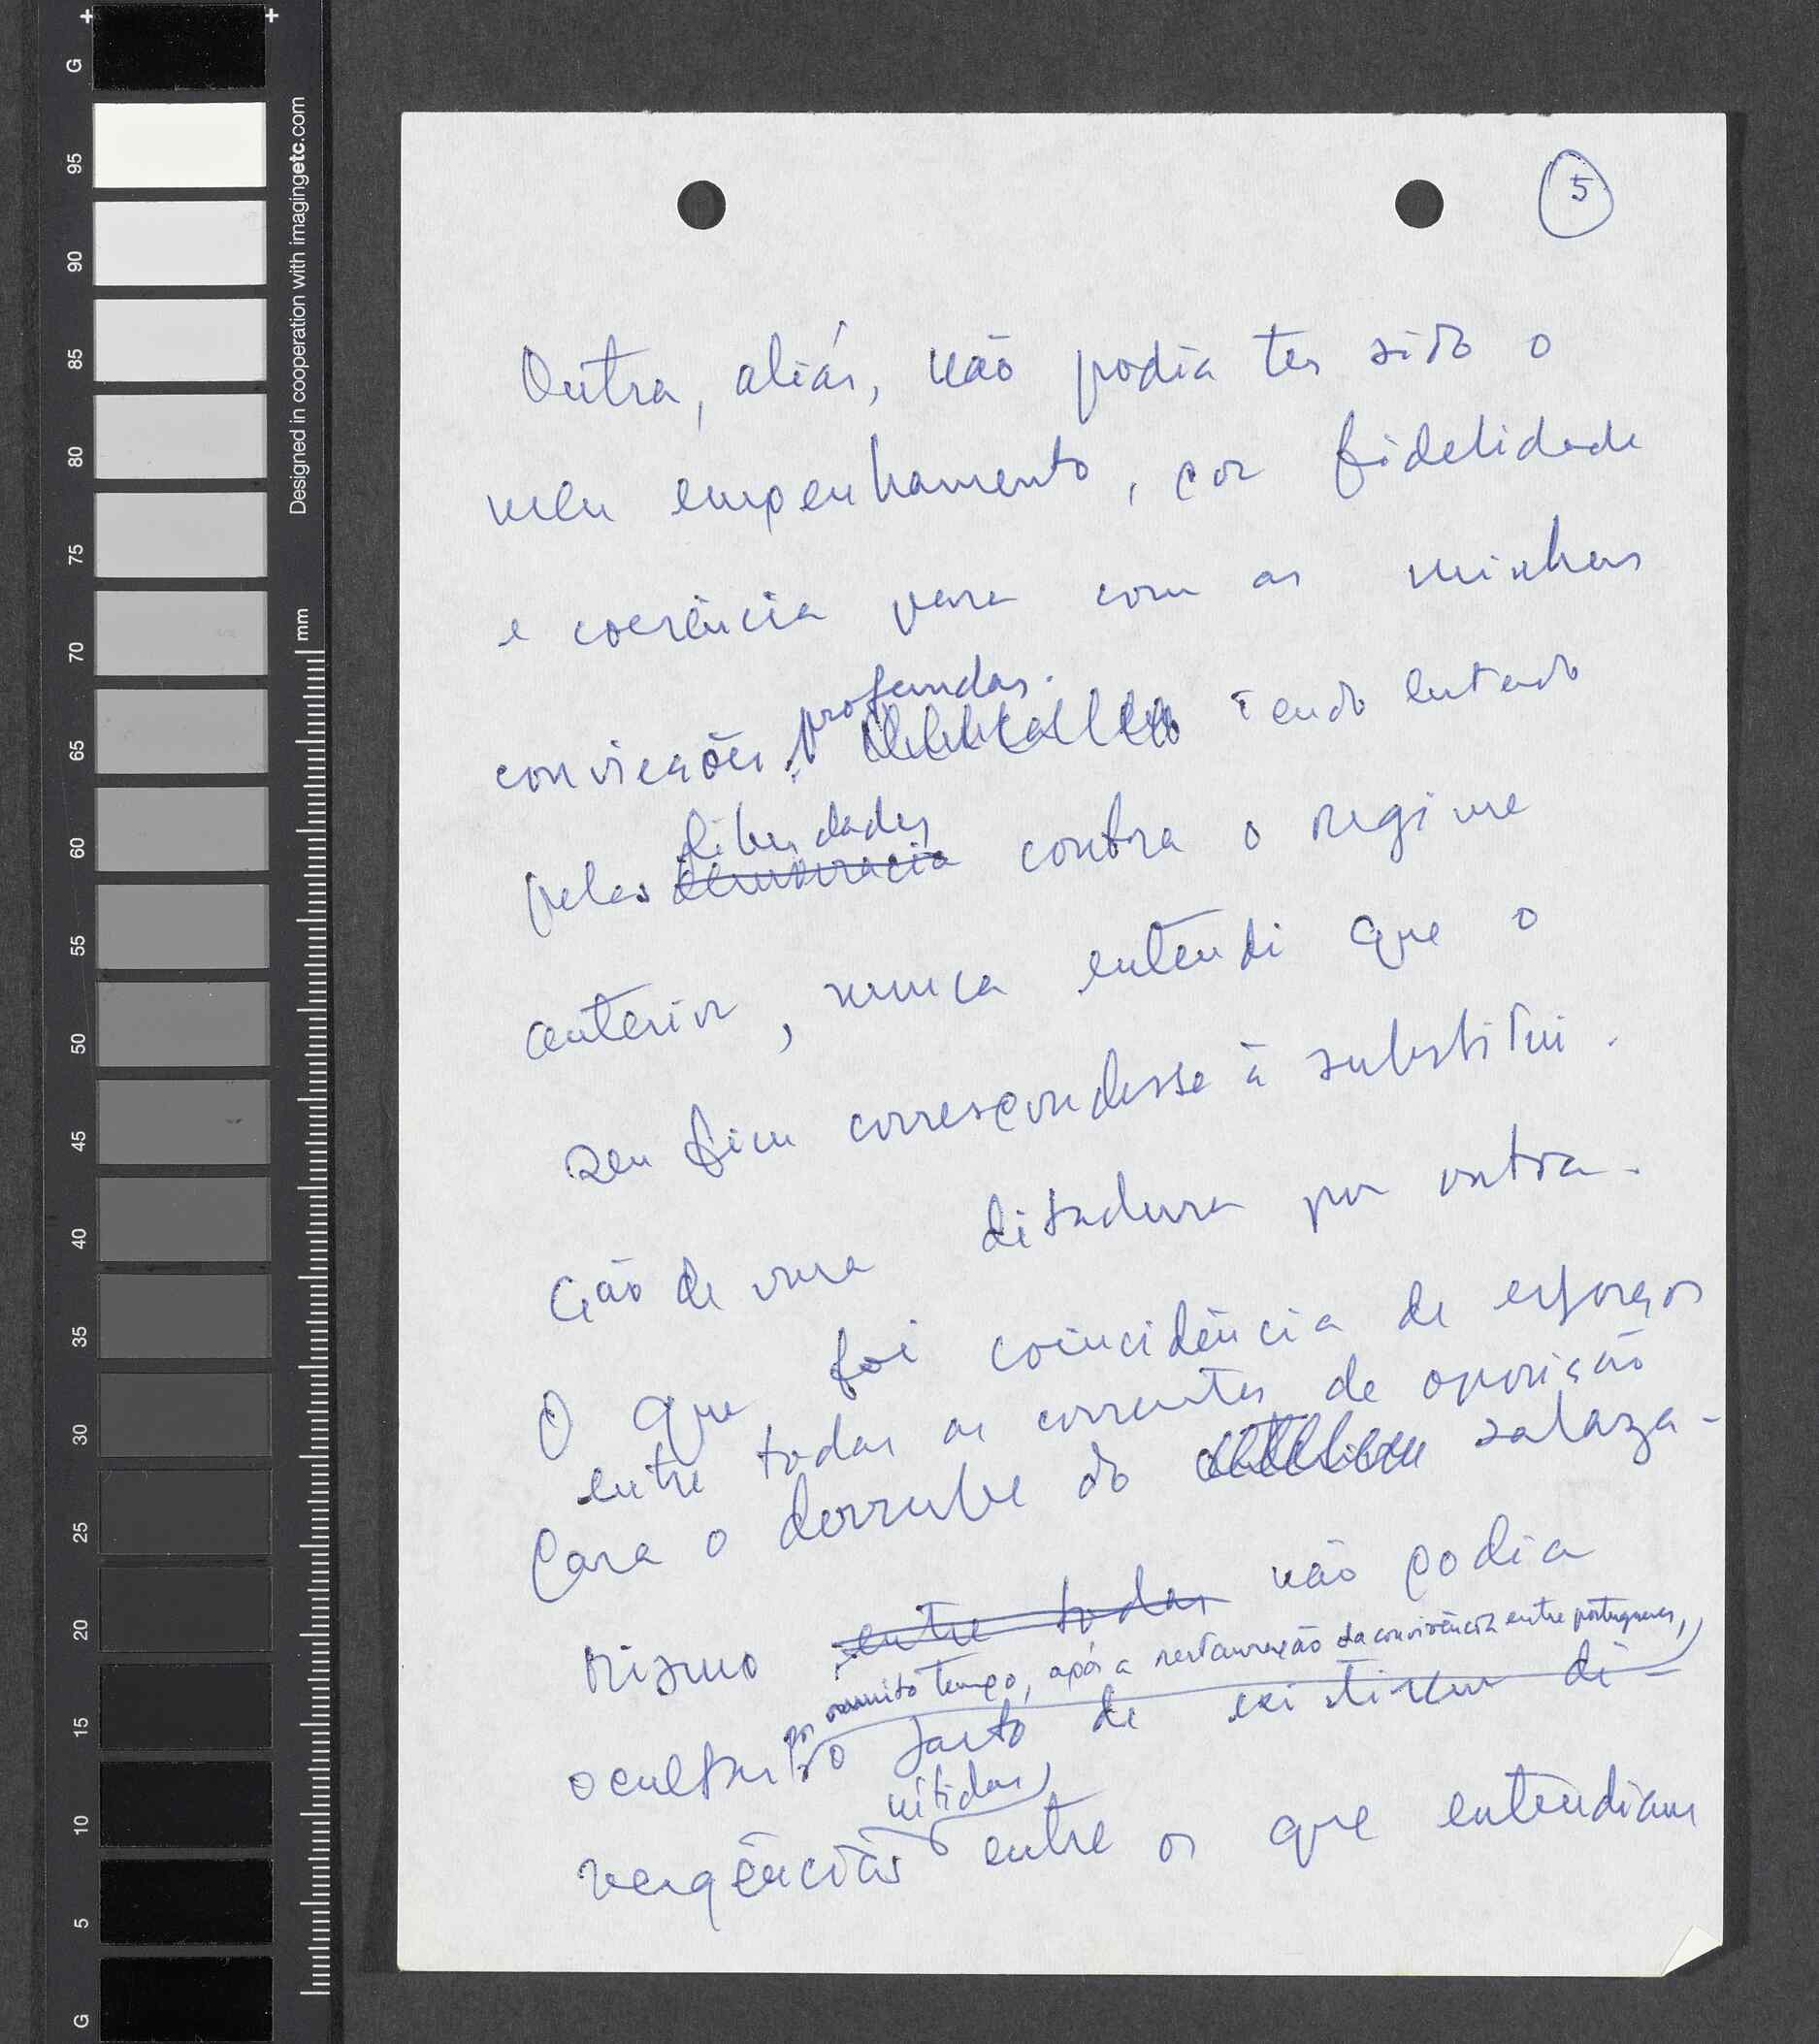 5
Outra, aliás, não podia ter sido o
meu empenhamento, por fidelidade
e coerência para com as minhas
profundas.
convicções, Tendo lutado
liberdades
pelas democracia contra o regime
anterior, nunca entendi que o
seu fim correspondesse à substitui-
ção de uma ditadura por outra.
O que foi coincidência de esforços
entre todas as correntes de oposição
para o derrube do salaza-
rismo entre todas não podia
por muito tempo, após a restauração da convivência entre portugueses,
ocultar o facto de existirem di-
nítidas
vergências entre os que entendiam
G
95
90
85
80
75
70
65
60
55
50
45
40
35
30
25
20
15
10
5
G
Designed in cooperation with imagingetc.com
mm